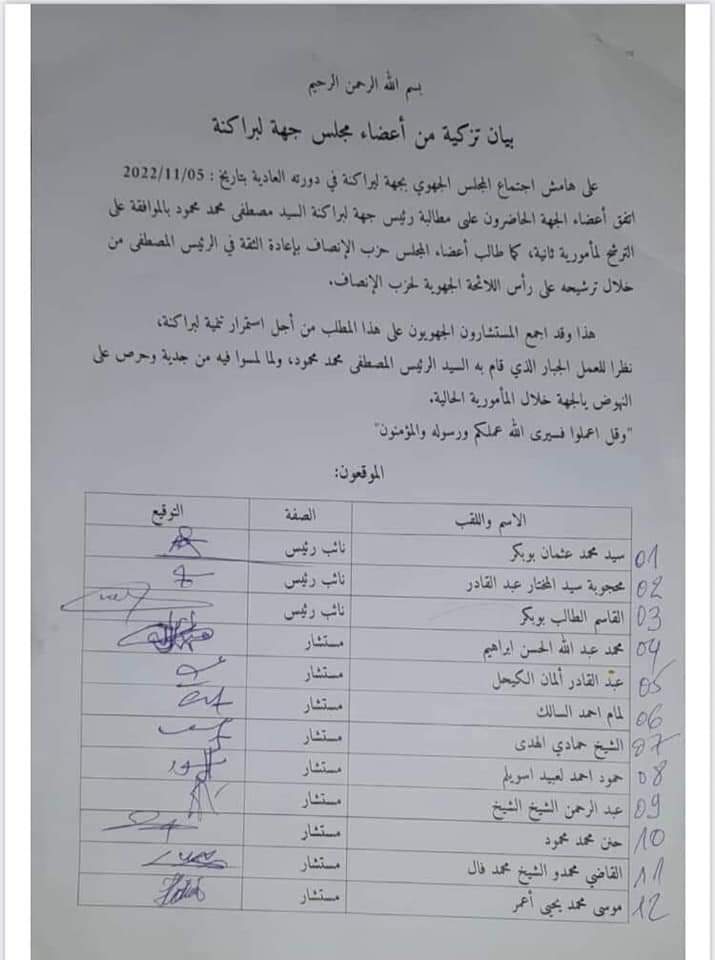 بسم الله الرحمن الرحيم
بيان تزكية من أعضاء مجلس جهة لبراكنة
على هامش اجتماع المجلس الجهوي بجهة لبراكنة في دورته العادية بتاريخ : 2022/11/05
اتفق أعضاء الجهة الحاضرون على مطالبة رئيس جهة لبراكنة السيد مصطفى محمد محمود بالموافقة على
الترشح لمأمورية ثانية، كما طالب أعضاء المجلس حزب الإنصاف بإعادة الثقة في الرئيس المصطفى من
خلال ترشيحه على رأس اللائحة الجهوية لحزب الإنصاف.
هذا وقد اجمع المستشارون الجهويون على هذا المطلب من أجل استمرار تنمية لبراكنة،
نظرا للعمل الجبار الذي قام به السيد الرئيس المصطفى محمد محمود، ولما لمسوا فيه من جدية وحرص على
النهوض بالجهة خلال المأمورية الحالية.
"وقل اعملوا فسيرى الله عملكم ورسوله والمؤمنون"
الموقعون:
الاسم واللقب الصفة التوقيع
01 سيد محمد عثمان بوبكر نائب رئيس
02 محجوبة سيد المختار عبد القادر نائب رئيس
03 القاسم الطالب بوبكر نائب رئيس
04 محمد عبد الله الحسن ابراهيم مستشار
05 عبد القادر ألمان الكيحل مستشار
06 لمام احمد السالك مستشار
07 الشيخ حمادي الهدى مستشار
08 حمود احمد لعبيد اسويلم مستشار
09 عبد الرحمن الشيخ الشيخ مستشار
10 حنن محمد محمود مستشار
11 القاضي محمدو الشيخ محمد فال مستشار
12 موسى محمد يحيى أعمر مستشار